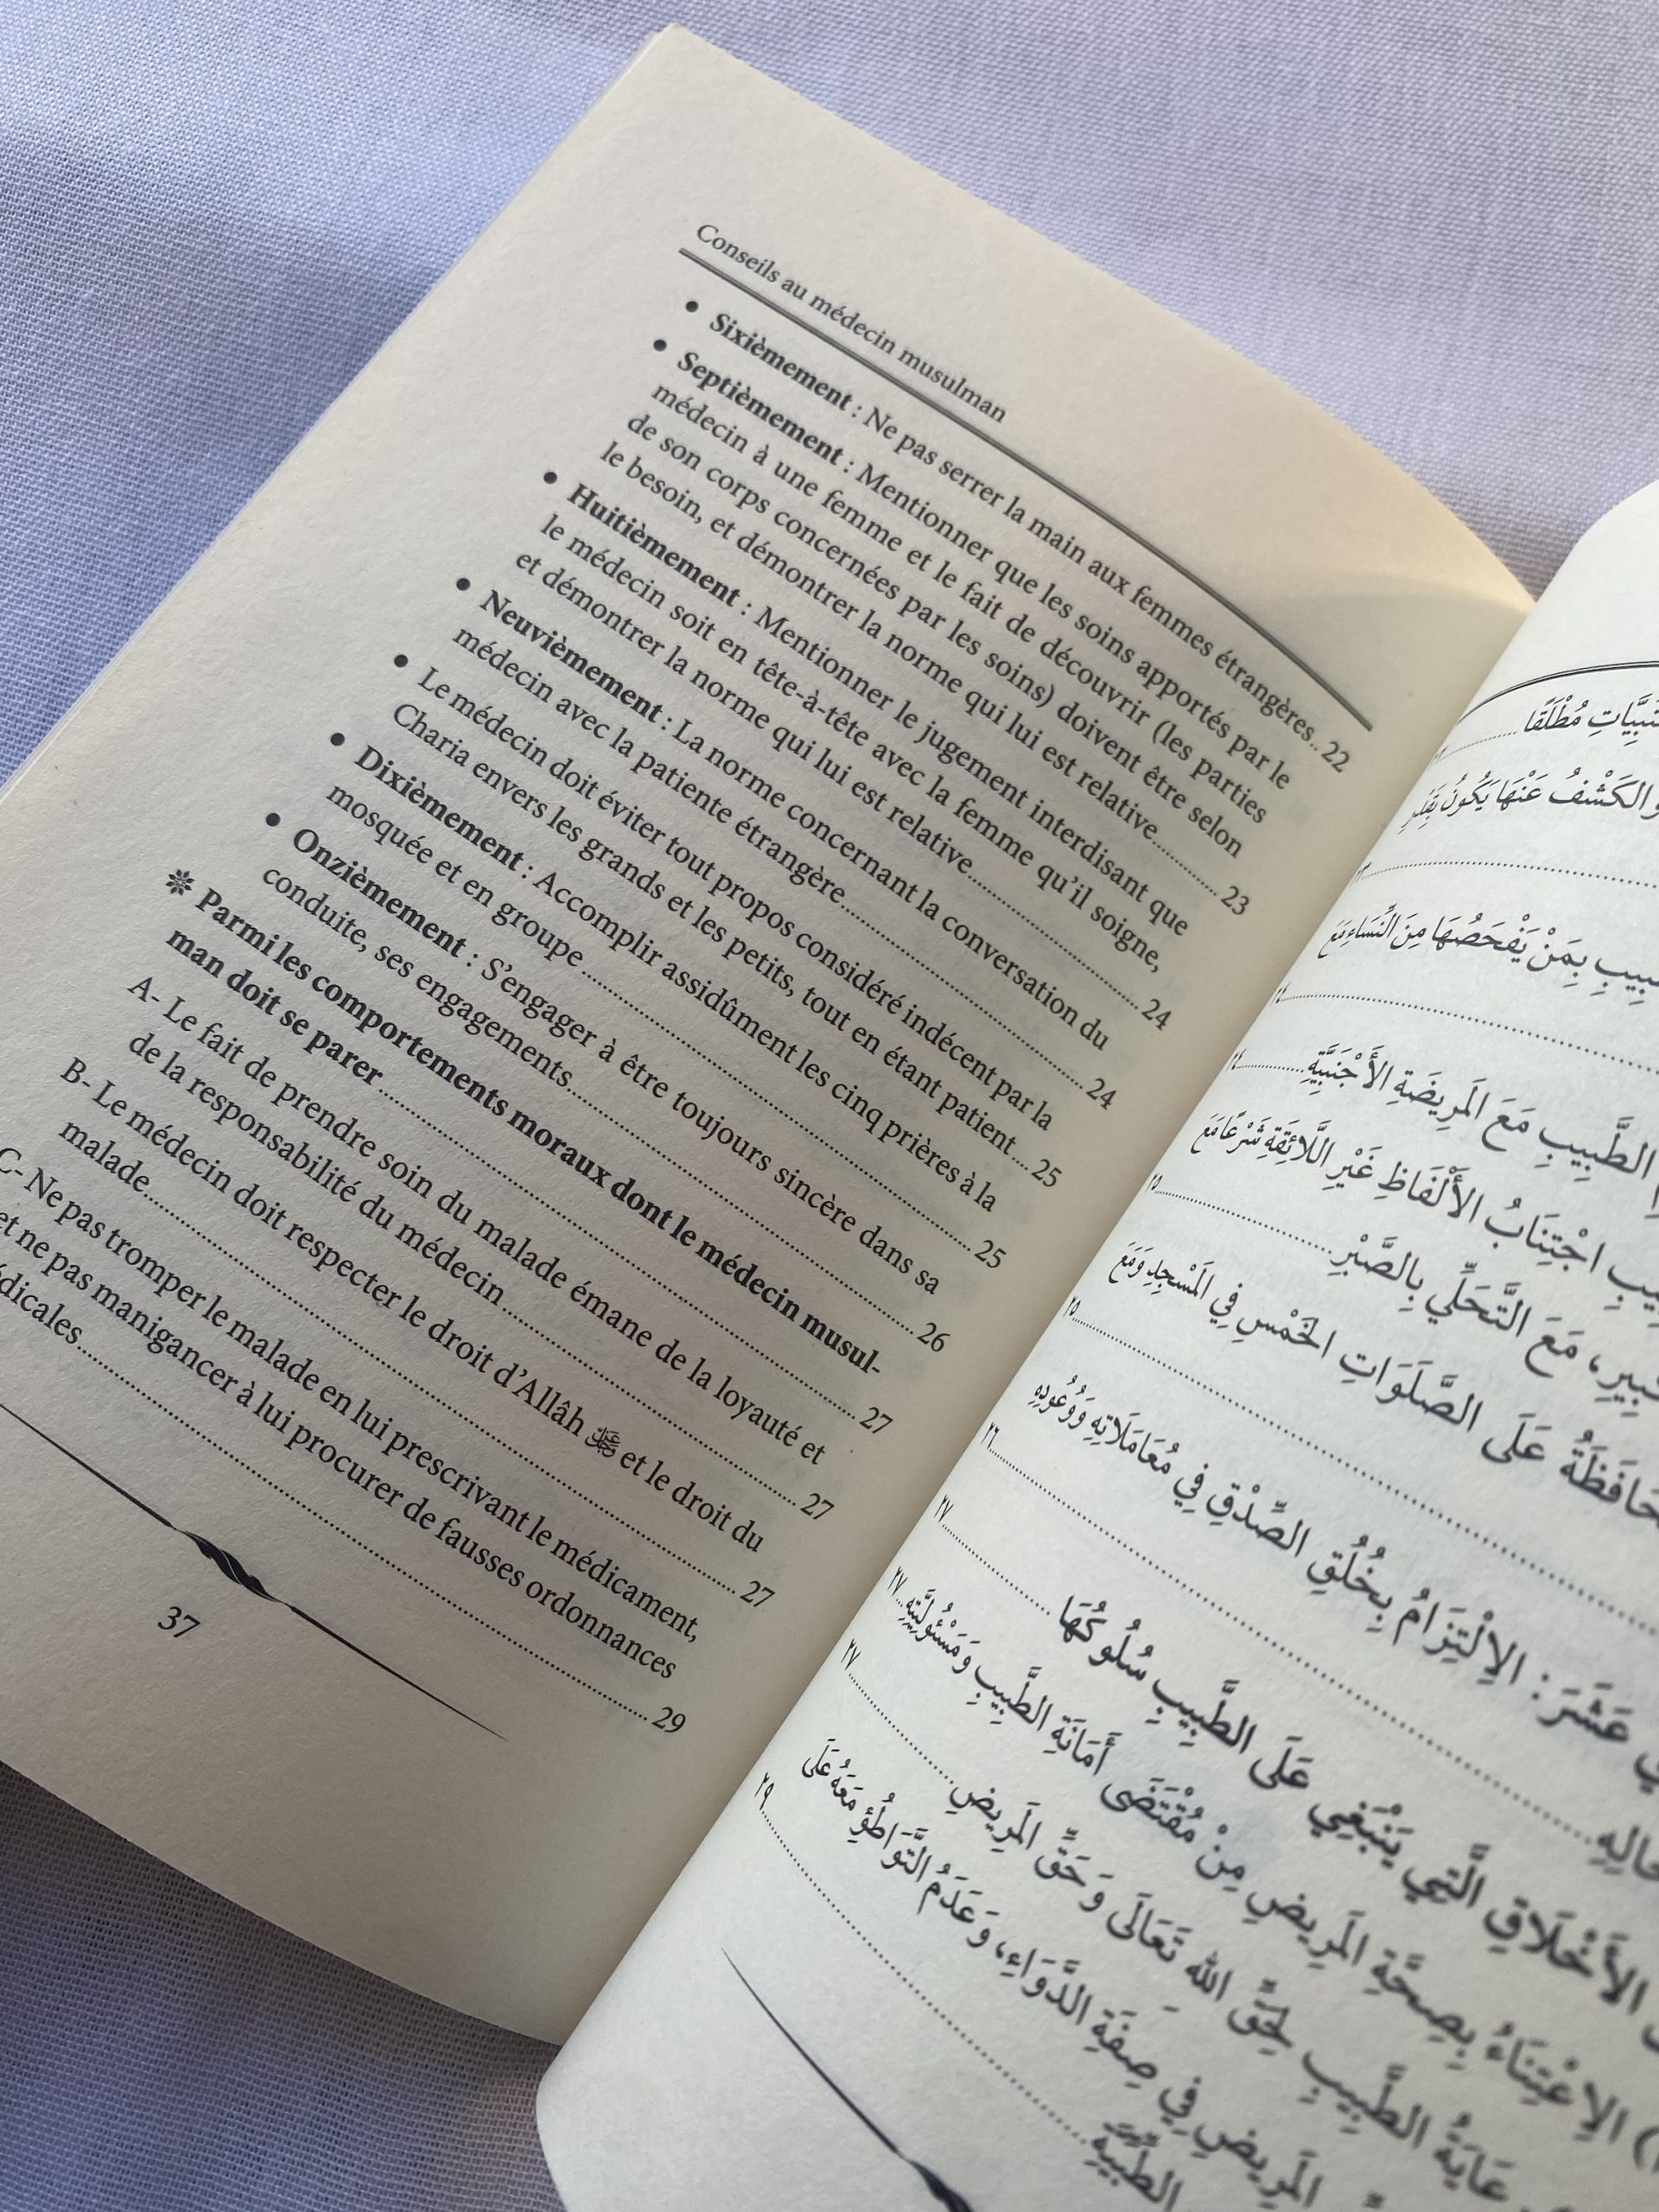 Conseils au médecin musulman
• Sixièmement : Ne pas serrer la main aux femmes étrangères.. 22
• Septièmement : Mentionner que les soins apportés par le
médecin à une femme et le fait de découvrir (les parties
de son corps concernées par les soins) doivent être selon
le besoin, et démontrer la norme qui lui est relative.......... 23
• Huitièmement : Mentionner le jugement interdisant que
le médecin soit en tête-à-tête avec la femme qu’il soigne,
et démontrer la norme qui lui est relative........................... 24
• Neuvièmement : La norme concernant la conversation du
médecin avec la patiente étrangère....................................... 24
• Le médecin doit éviter tout propos considéré indécent par la
Charia envers les grands et les petits, tout en étant patient... 25
• Dixièmement : Accomplir assidûment les cinq prières à la
mosquée et en groupe................................................................ 25
• Onzièmement : S’engager à être toujours sincère dans sa
conduite, ses engagements....................................................... 26
❊ Parmi les comportements moraux dont le médecin musul-
man doit se parer........................................................................ 27
A- Le fait de prendre soin du malade émane de la loyauté et
de la responsabilité du médecin................................................ 27
B- Le médecin doit respecter le droit d’Allâh ﷻ et le droit du
malade............................................................................................... 27
C- Ne pas tromper le malade en lui prescrivant le médicament,
et ne pas manigancer à lui procurer de fausses ordonnances
dicales................................................................................................ 29
37
مُطْلَقًا
وَالكَشْفُ عَنْهَا يَكُونُ بِقَدْرِ
بِمَنْ يَفْحَصُهَا مِنَ النِّسَاءِ مَعَ
٢٤
الطَّبِيبِ مَعَ المَرِيضَةِ الأَجْنَبِيَّةِ............ ٢٤
اجْتِنَابُ الأَلْفَاظِ غَيْرِ اللَّائِقَةِ شَرْعًا مَعَ
مَعَ التَّحَلِّي بِالصَّبْرِ........................ ٢٥
عَلَى الصَّلَوَاتِ الخَمْسِ فِي المَسْجِدِ وَمَعَ
٢٥
عَشَرَ: الِالْتِزَامُ بِخُلُقِ الصِّدْقِ فِي مُعَامَلَاتِهِ وَوُعُودِهِ
٢٦
الأَخْلَاقِ الَّتِي يَنْبَغِي عَلَى الطَّبِيبِ سُلُوكُهَا.............. ٢٧
الِاعْتِنَاءُ بِصِحَّةِ المَرِيضِ مِنْ مُقْتَضَى أَمَانَةِ الطَّبِيبِ وَمَسْئُولِيَّتِهِ... ٢٧
الطَّبِيبِ لِحَقِّ اللهِ تَعَالَى وَحَقِّ المَرِيضِ.............. ٢٧
المَرِيضِ فِي صِفَةِ الدَّوَاءِ، وَعَدَمُ التَّوَاطُؤِ مَعَهُ عَلَى
الطِّبِّيَّةِ........................ ٢٩